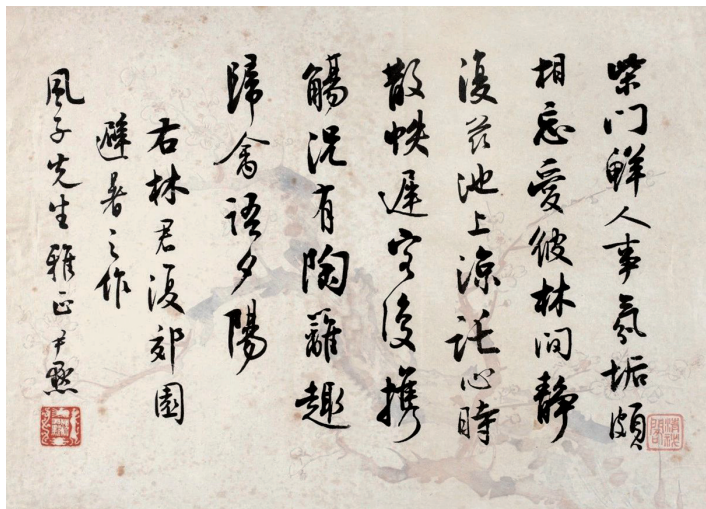 柴门鲜人事氛垢頗
相忘愛彼林间静
復茲池上涼託心時
散帙遲客復携
觴況有陶籬趣
歸禽語夕陽
右林君復郊園
避暑之作
風子先生雅正尹默